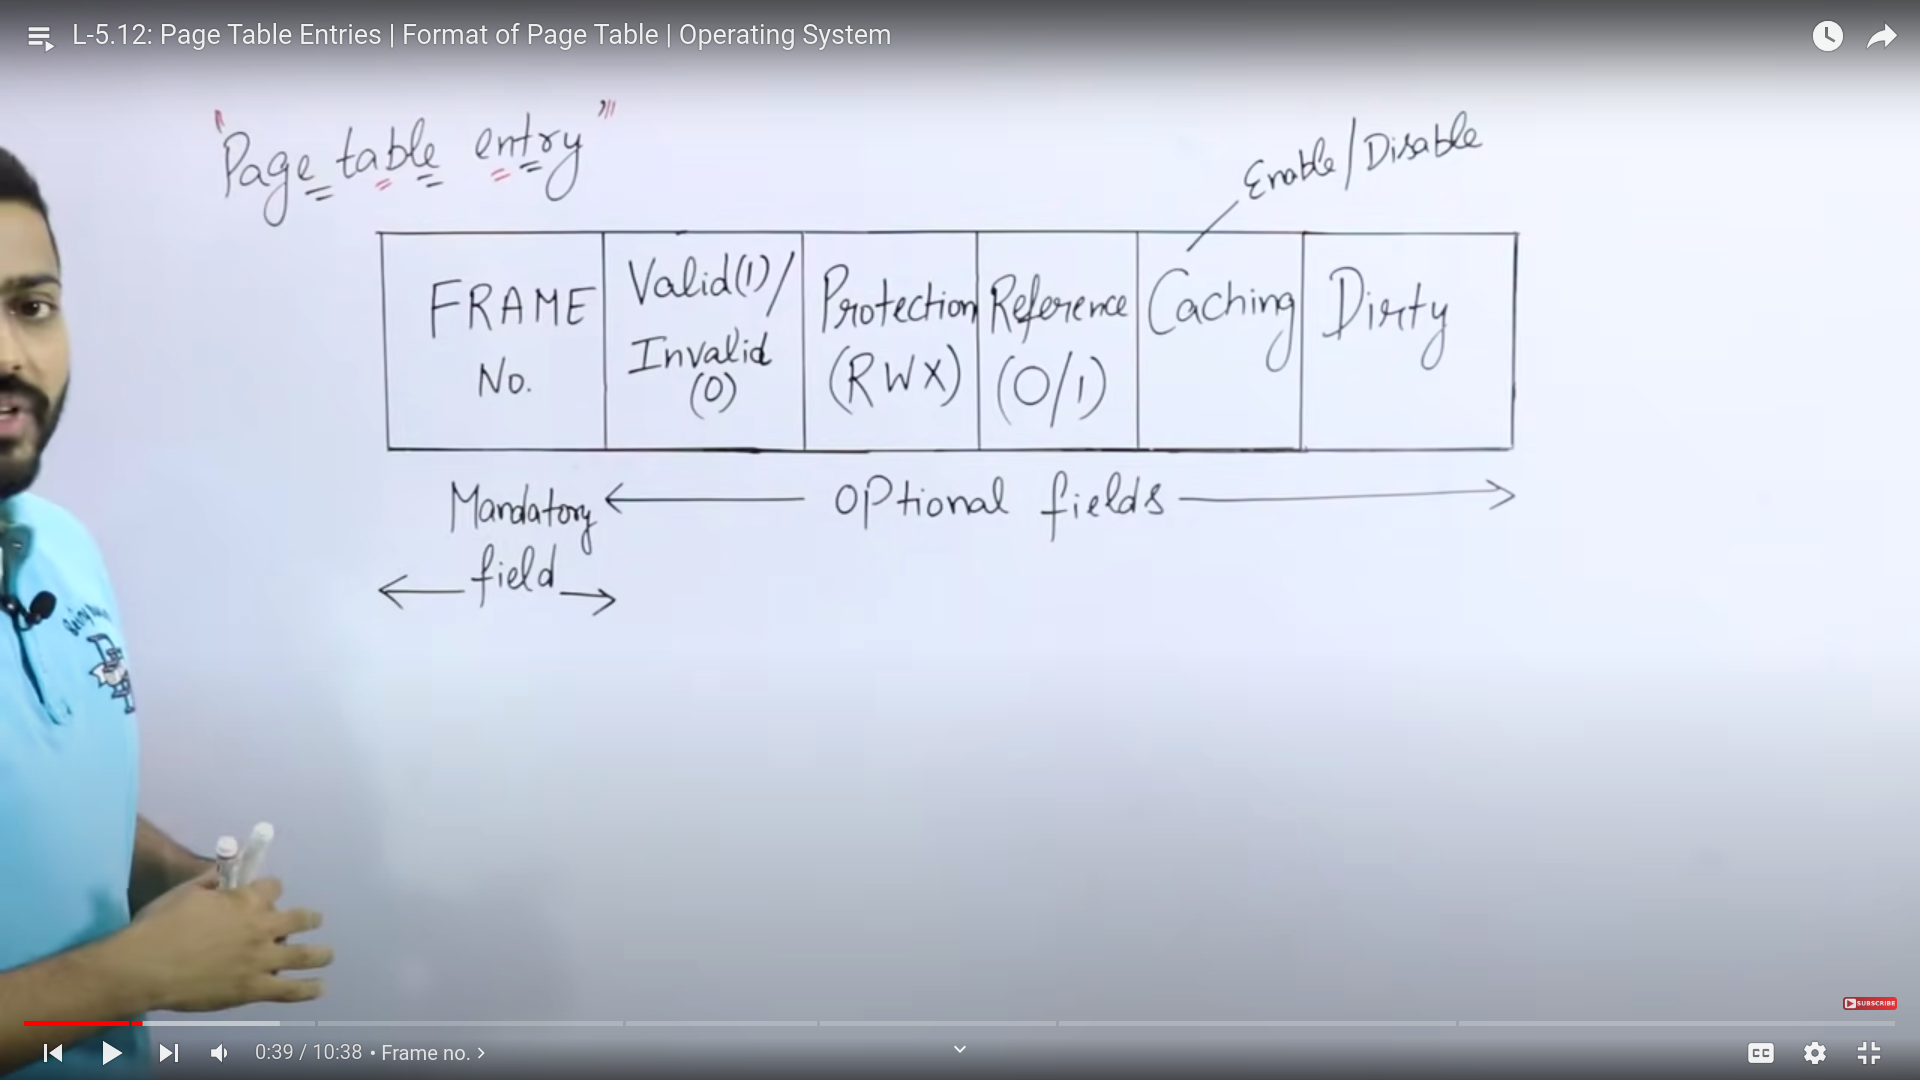 L-5.12: Page Table Entries | Format of Page Table | Operating System
"Page table entry"
Enable/Disable
FRAME No.
Valid(1)/ Invalid (0)
Protection (RWX)
Reference (0/1)
Caching
Dirty
Mandatory field
Optional fields
SUBSCRIBE
0:39 / 10:38 • Frame no. >
CC